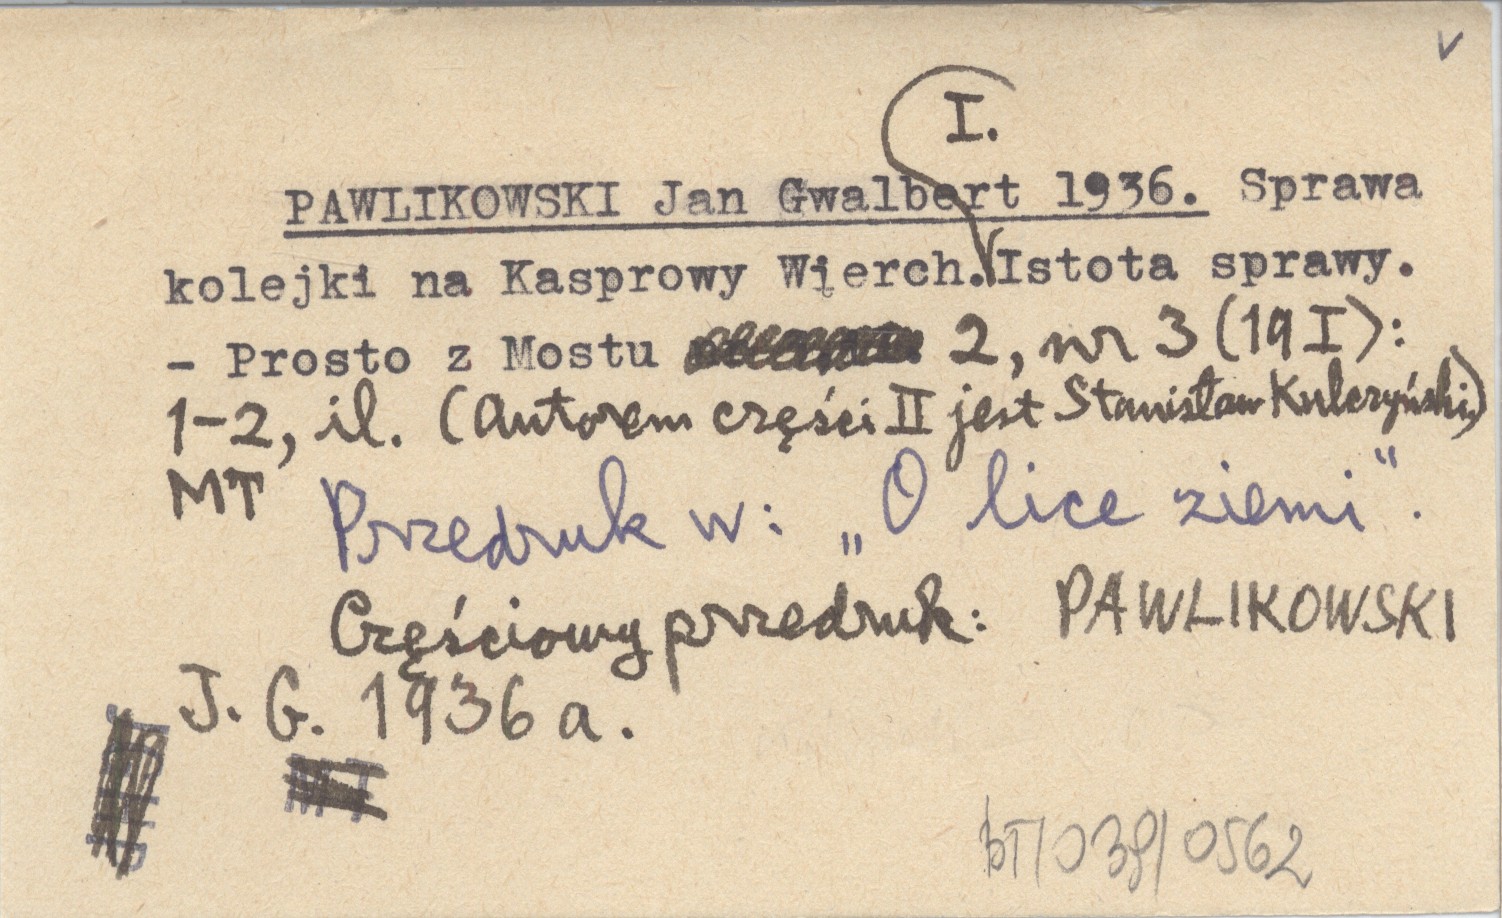 v
I.
PAWLIKOWSKI Jan Gwalbert 1936. Sprawa
kolejki na Kasprowy Wierch. Istota sprawy.
- Prosto z Mostu 2, nr 3 (19 I):
1-2, il. (Autorem części II jest Stanisław Kulczyński)
MT Przedruk w: „O lice ziemi".
Częściowy przedruk: PAWLIKOWSKI
J. G. 1936 a.
bT/038/0562